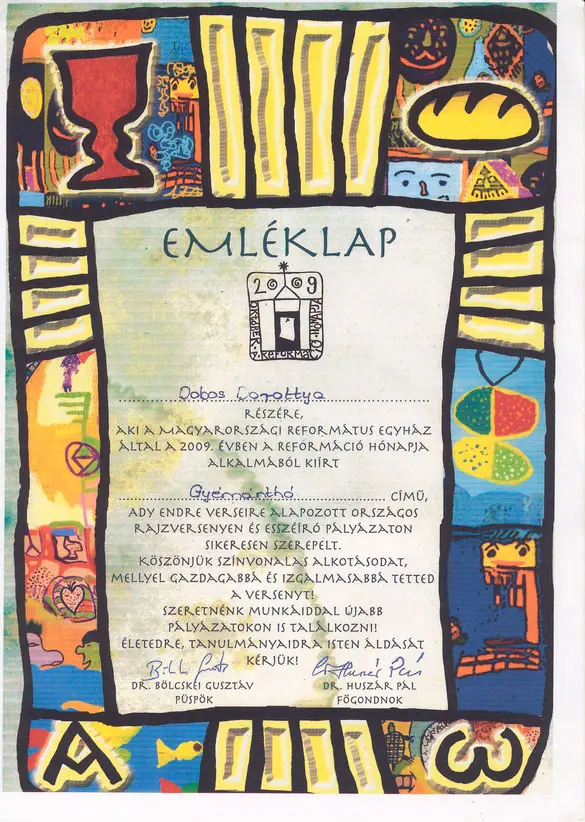 EMLÉKLAP
2009
OKTÓBER A REFORMÁCIÓ HÓNAPJA
Dobos Dorottya
RÉSZÉRE,
AKI A MAGYARORSZÁGI REFORMÁTUS EGYHÁZ
ÁLTAL A 2009. ÉVBEN A REFORMÁCIÓ HÓNAPJA
ALKALMÁBÓL KIÍRT
Gyémánthó CÍMŰ,
ADY ENDRE VERSEIRE ALAPOZOTT ORSZÁGOS
RAJZVERSENYEN ÉS ESSZÉÍRÓ PÁLYÁZATON
SIKERESEN SZEREPELT.
KÖSZÖNJÜK SZÍNVONALAS ALKOTÁSODAT,
MELLYEL GAZDAGABBÁ ÉS IZGALMASABBÁ TETTED
A VERSENYT!
SZERETNÉNK MUNKÁIDDAL ÚJABB
PÁLYÁZATOKON IS TALÁLKOZNI!
ÉLETEDRE, TANULMÁNYAIDRA ISTEN ÁLDÁSÁT
KÉRJÜK!
DR. BÖLCSKÉI GUSZTÁV
PÜSPÖK
DR. HUSZÁR PÁL
FŐGONDNOK
A
ω